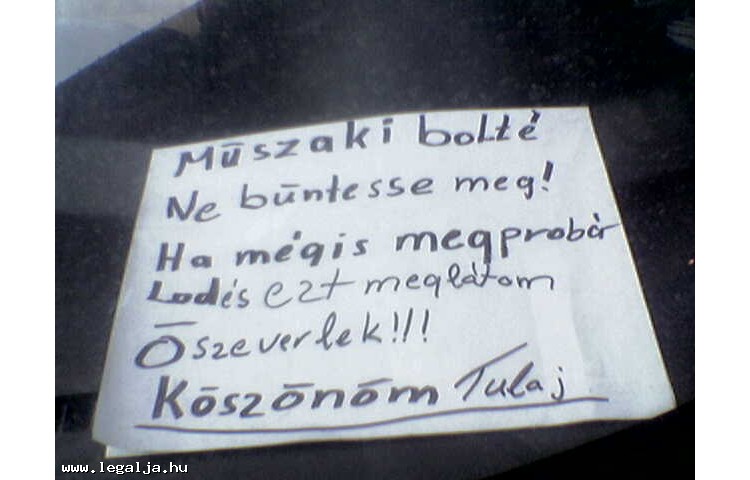 Mūszaki bolté
Ne būntesse meg!
Ha mégis megprobár
Lodés ezt meglátom
Ōszeverlek!!!
Kōszōnōm Tulaj
www.legalja.hu